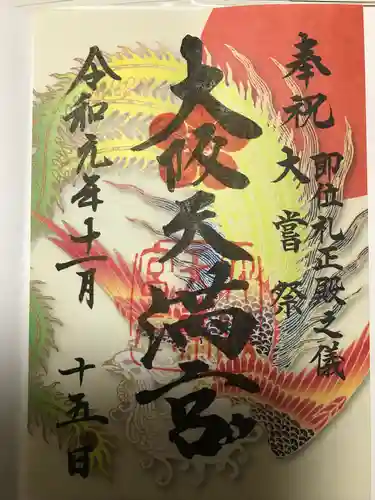 奉祝
即位礼正殿之儀
大嘗祭
大阪天満宮
令和元年十一月
十五日